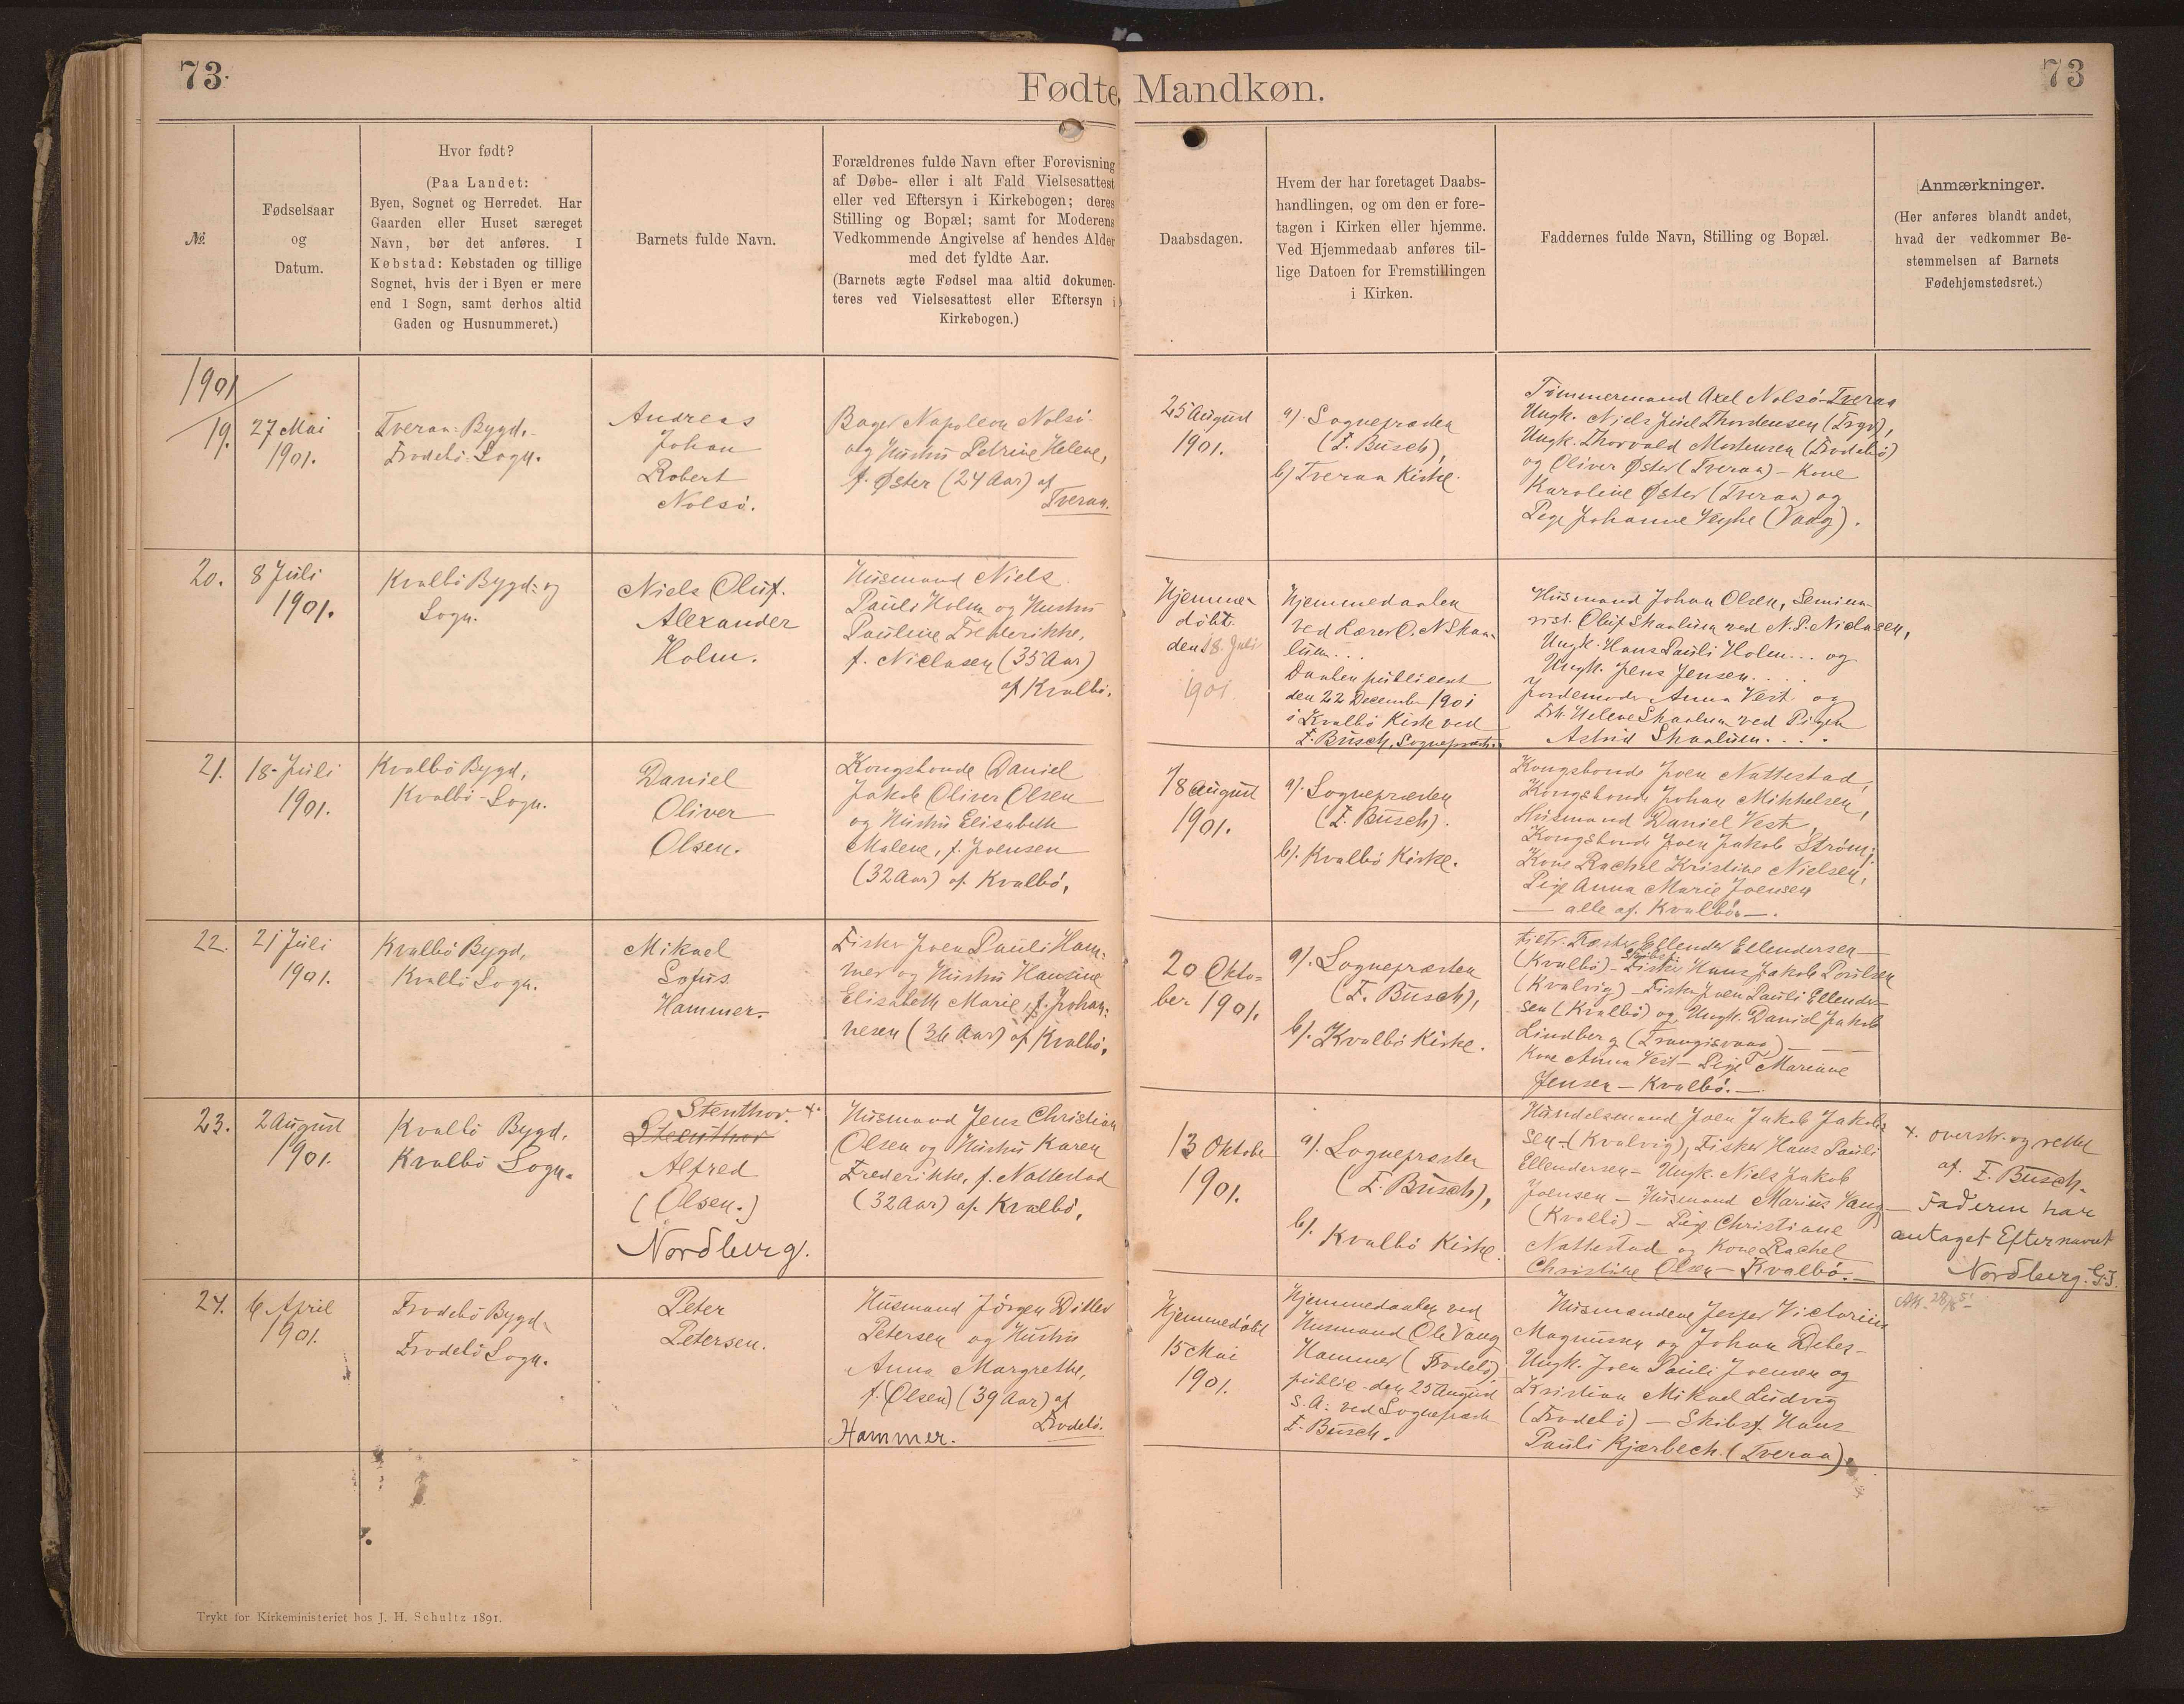 73.
Fødte Mandkøn.
73
№.
Fødselsaar
og
Datum.
Hvor født?
(Paa Landet:
Byen, Sognet og Herredet. Har
Gaarden eller Huset særeget
Navn, bør det anføres. I
Købstad: Købstaden og tillige
Sognet, hvis der i Byen er mere
end 1 Sogn, samt derhos altid
Gaden og Husnummeret.)
Barnets fulde Navn.
Forældrenes fulde Navn efter Forevisning
af Døbe- eller i alt Fald Vielsesattest
eller ved Eftersyn i Kirkebogen; deres
Stilling og Bopæl; samt for Moderens
Vedkommende Angivelse af hendes Alder
med det fyldte Aar.
(Barnets ægte Fødsel maa altid dokumen-
teres ved Vielsesattest eller Eftersyn i
Kirkebogen.)
Daabsdagen.
Hvem der har foretaget Daabs-
handlingen, og om den er fore-
tagen i Kirken eller hjemme.
Ved Hjemmedaab anføres til-
lige Datoen for Fremstillingen
i Kirken.
Faddernes fulde Navn, Stilling og Bopæl.
Anmærkninger.
(Her anføres blandt andet,
hvad der vedkommer Be-
stemmelsen af Barnets
Fødehjemstedsret.)
1901
19.
27 Mai
1901.
Tveraa-Bygd,
Frodebö-Sogn.
Andreas
Johan
Robert
Nolsö.
Bager Napoleon Nolsö
og Hustru Petrine Helene,
f. Øster (24 Aar) af
Tveraa.
25 August
1901.
a). Sognepræsten
(F. Busch),
b) Tveraa Kirke.
Tömmermand Axel Nolsö-Tveraa
Ungk. Niels Juul Thordensen
Ungk. Thorvald Mortensen (Frodebö)
og Oliver Øster (Tveraa) - Kone
Karoline Øster (Tveraa) og
Pige Johanne Weyhe (Vaag).
20.
8 Juli
1901.
Kvalbö Bygd- og
Sogn.
Niels Oluf.
Alexander
Holm.
Husmand Niels
Pauli Holm og Hustru
Pauline Frederikke,
f. Niclasen (35 Aar)
af Kvalbö.
Hjemme-
döbt
den 18. Juli
1901
Hjemmedaaben
ved Lærer O. N Skaa-
lum...
Daaben publiceret
den 22 December 1901
i Kvalbö Kirke ved
F. Busch, Sognepræst.
Husmand Johan Olsen, Semina-
rist. Oluf Skaalum ved N. P. Niclasen,
Ungk. Hans Pauli Holm... og
Ungk. Jens Jensen....
Jordemoder Anna Vest og
Helene Skaalum ved Pigen
Astrid Skaalum....
21.
18 Juli
1901.
Kvalbö Bygd,
Kvalbö-Sogn.
Daniel
Oliver
Olsen.
Kongsbonde Daniel
Jakob Oliver Olsen
og Hustru Elisabeth
Malene, f. Joensen
(32 Aar) af Kvalbö.
18 August
1901.
a). Sognepræsten
(F. Busch).
b). Kvalbö Kirke.
Kongsbonde Joen Nattestad,
Kongsbonde Johan Mikkelsen,
Husmand Daniel Vest,
Kongsbonde Joen Jakob Ström;
Kone Rachel Kristine Nielsen,
Pige Anna Marie Joensen
— alle af Kvalbö —.
22.
21 Juli
1901.
Kvalbö Bygd,
Kvalbö Sogn.
Mikael
Sofus
Hammer.
Fisker Joen Pauli Ham-
mer og Hustru Hansine
Elisabeth Marie, f. Johan-
nesen (36 Aar) af Kvalbö.
20 Okto-
ber 1901.
a). Sognepræsten
(F. Busch),
b). Kvalbö Kirke.
Ellender Ellendersen —
(Kvalbö) - Hans Jakob Poulsen
(Kvalvig) - Fisker Joen Pauli Ellender-
sen (Kvalbö) og Ungk. Daniel Jakob
Lindberg (Trangisvaag) —
Kone Anna Vest - Pige Mariane
Jensen - Kvalbö. —
23.
2 August
1901.
Kvalbö Bygd,
Kvalbö Sogn.
Stenthor. +
Steenthor
Alfred
(Olsen.)
Nordberg.
Husmand Jens Christian
Olsen og Hustru Karen
Frederikke, f. Nattestad
(32 Aar) af Kvalbö.
13 Oktober
1901.
a). Sognepræsten
(F. Busch),
b). Kvalbö Kirke.
Handelsmand Joen Jakob Jakob-
sen - (Kvalvig), Fisker Hans Pauli
Ellendersen - Ungk. Niels Jakob
Joensen - Husmand Marius Vang
(Kvalbö) - Pige Christiane
Nattestad og Kone Rachel
Christine Olsen - Kvalbö. —
+. overstr. og rettet
af. F. Busch.
— Faderen har
antaget Efternavnet
Nordberg. G.J.
24.
6 April
1901.
Frodebö Bygd,
Frodebö Sogn.
Peter
Petersen.
Husmand Jörgen Ditlev
Petersen og Hustru
Anna Margrethe,
f. (Olsen) (39 Aar) af
Frodebö.
Hammer.
Hjemmedöbt
15 Mai
1901.
Hjemmedaaben ved
Husmand Ole Vang
Hammer (Frodebö),
public. den 25 August
s. A. ved Sognepræst
F. Busch.
Husmændene Jesper Victorius
Magnussen og Johan Debes -
Ungk. Joen Pauli Joensen og
Kristian Mikael Ludvig
(Frodebö) - Skibsf. Hans
Pauli Kjærbech. (Tveraa).
Trykt for Kirkeministeriet hos J. H. Schultz 1891.